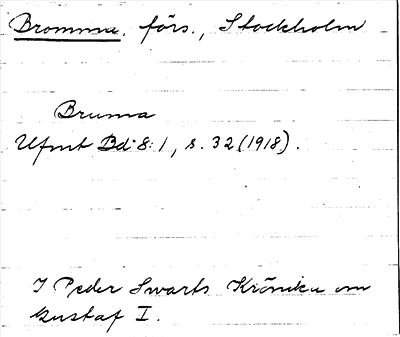 Bromma. förs., Stockholm
Bruma
Ufmt Bd 8:1, s. 32 (1918).
I Peder Swarts Krönika om
Gustaf I.